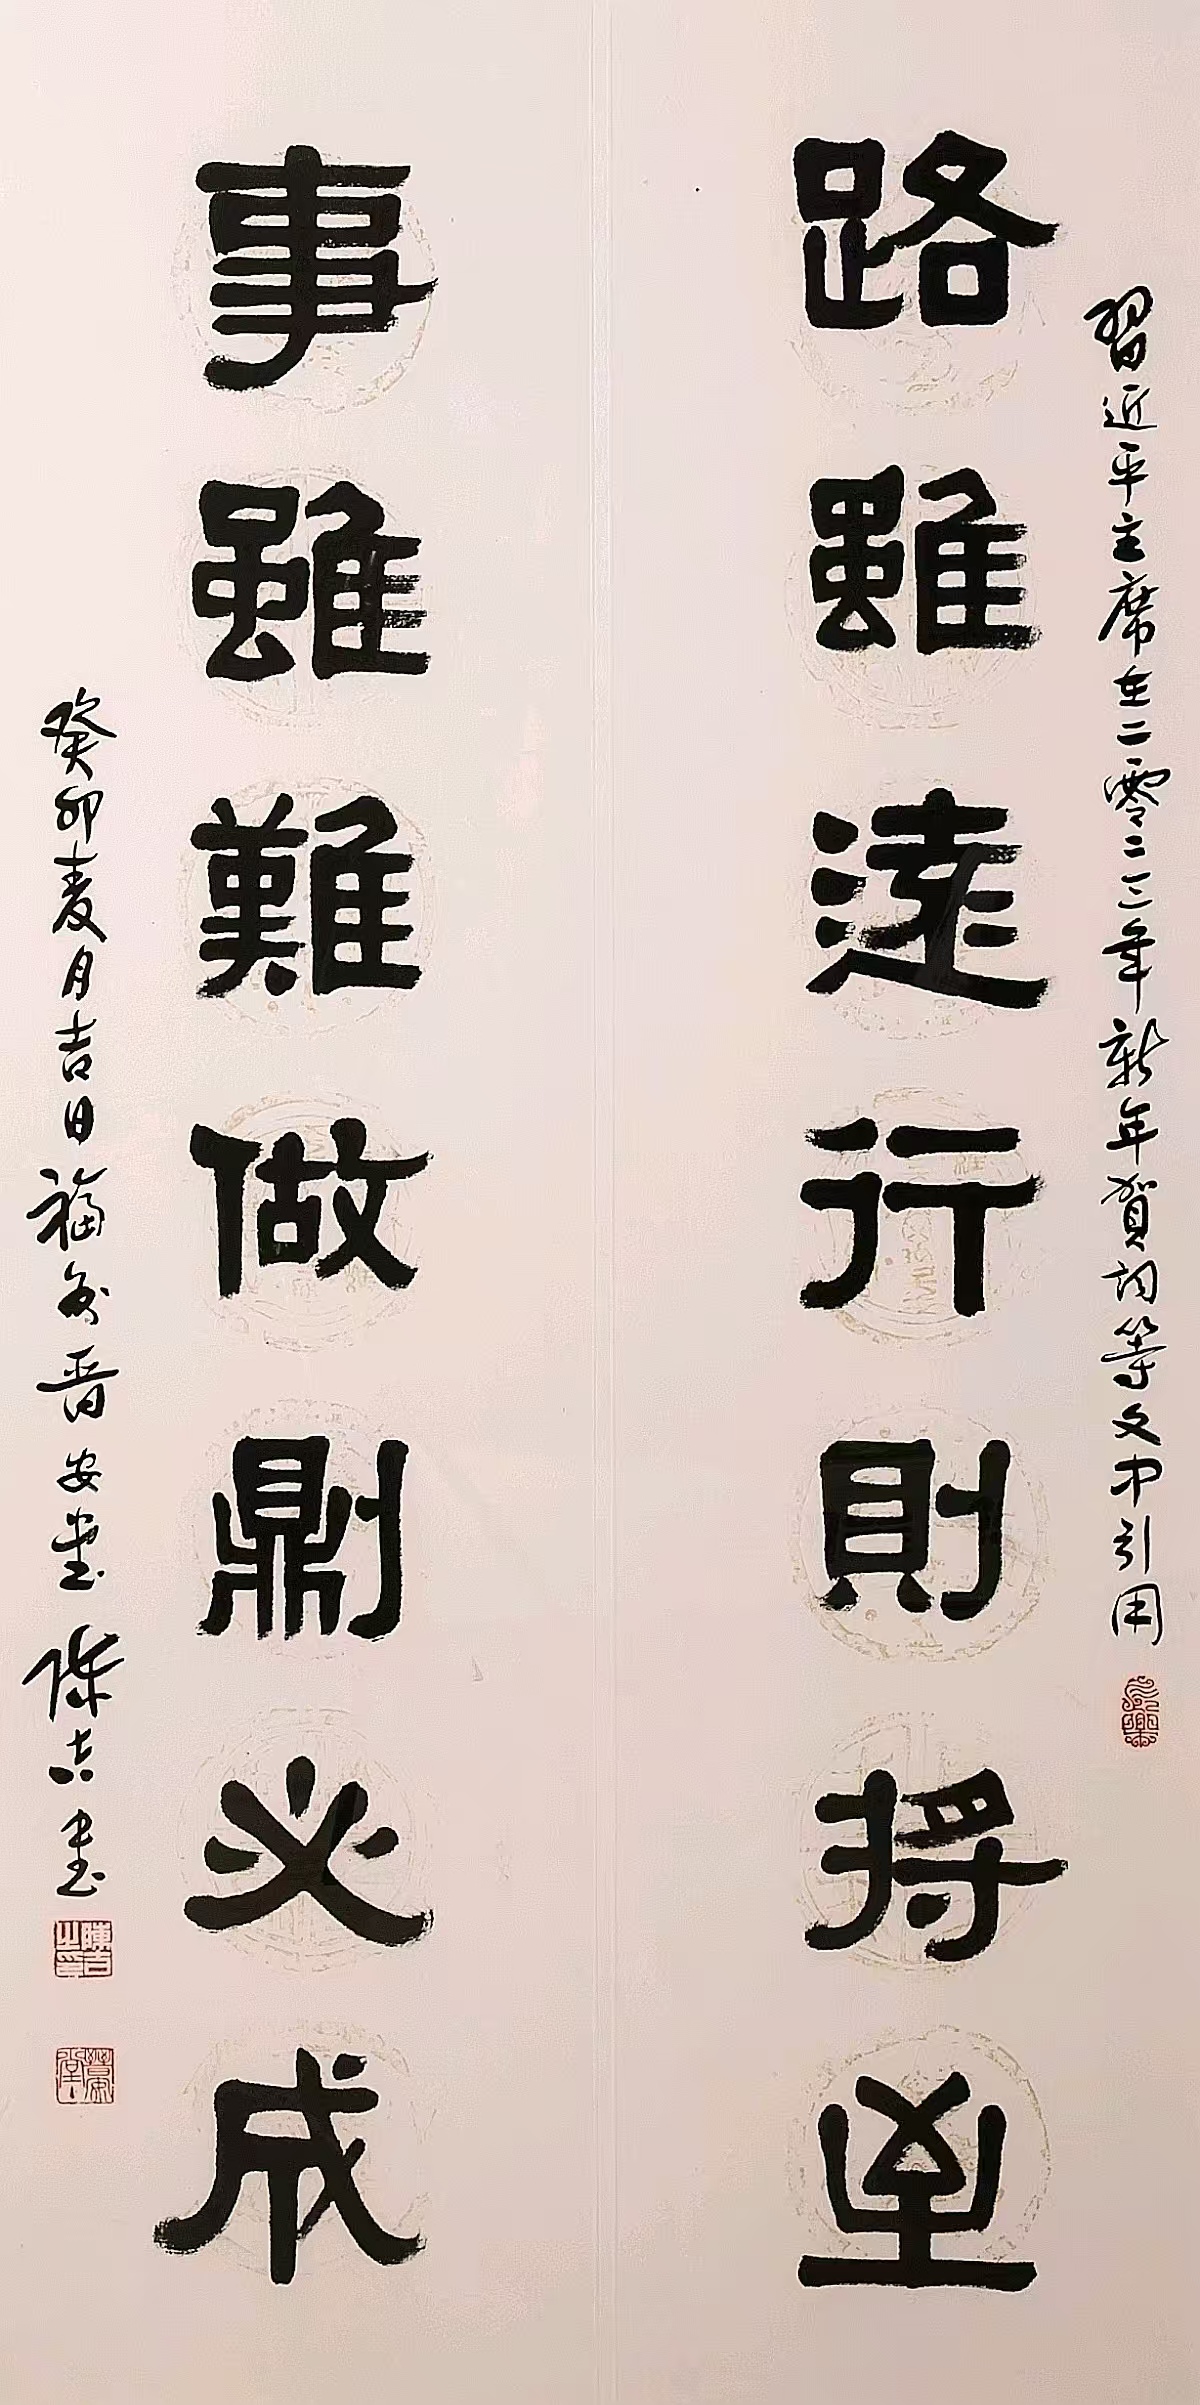 習近平主席在二零二三年新年賀词等文中引用
路雖遠行則將至
事雖難做則必成
癸卯麦月吉日福州晋安堂陳吉書
陳吉之印